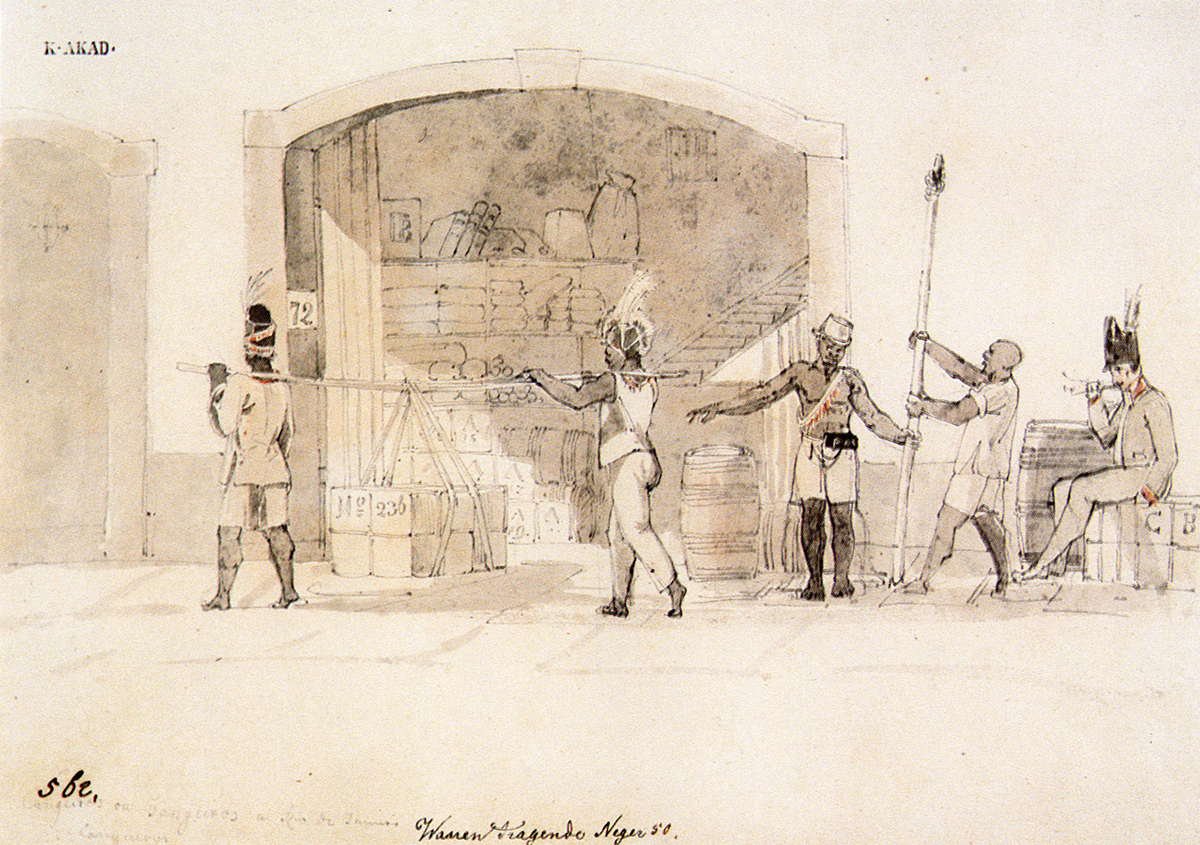 K·AKAD·
B
72
Nº 236
C B
562,
Cangueiros ou Tangueros a Rio de Janeiro
Warren Tragende Neger 50.